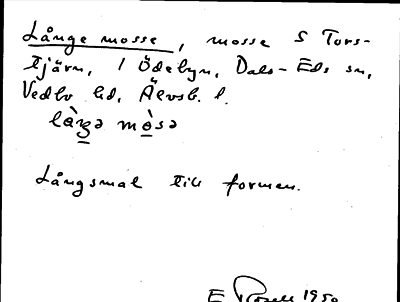 Långe mosse, mosse S Tors-
tjärn, i Ödebyn, Dals-Eds sn,
Vedbo hd, Älvsb. l.
làŋə mòsə
Långsmal till formen.
E 1950